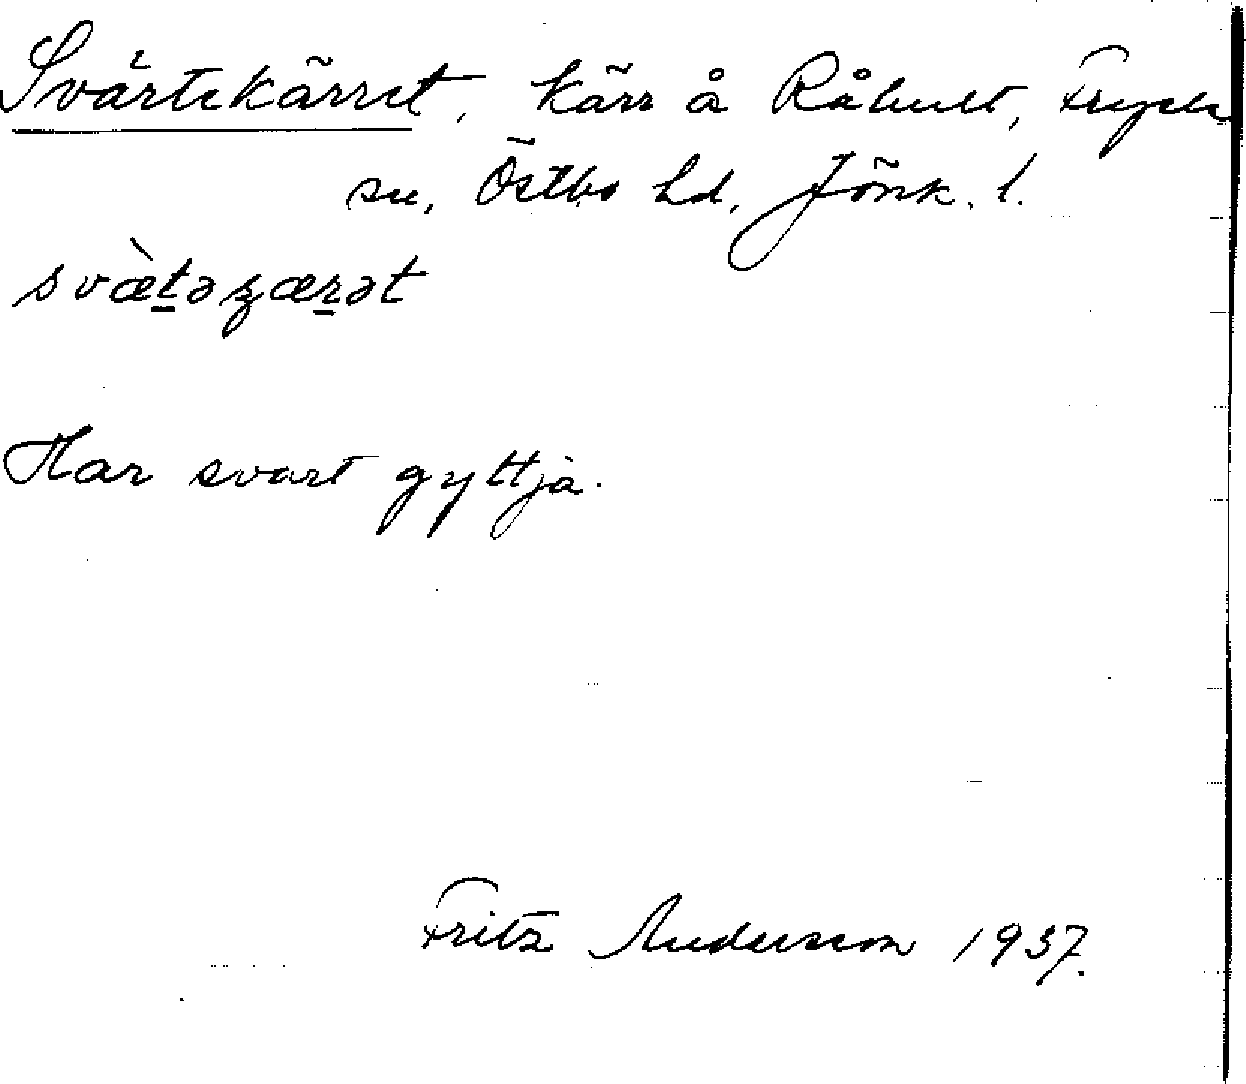 Svärtekärret, kärr å Råhult, Fryele
sn, Östbo hd, Jönk. l.
svæ̀t̠əʒær̠ət
Har svart gyttja.
Fritz Andersson 1937.